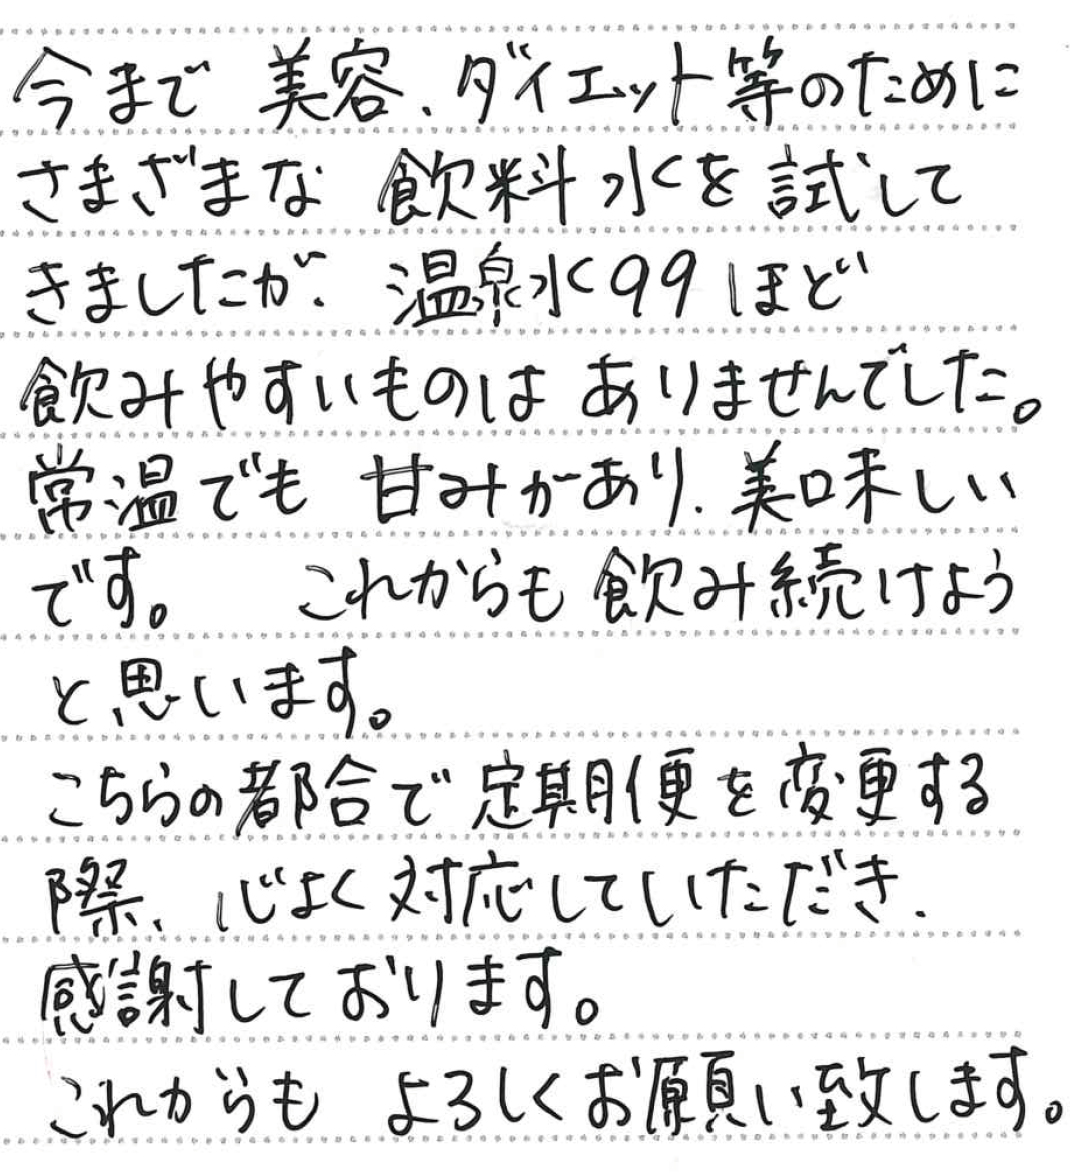 今まで 美容、ダイエット等のために
さまざまな 飲料水を試して
きましたが、温泉水99ほど
飲みやすいものは ありませんでした。
常温でも 甘みがあり、美味しい
です。 これからも飲み続けよう
と思います。
こちらの都合で定期便を変更する
際、心よく対応していただき、
感謝しております。
これからも よろしくお願い致します。